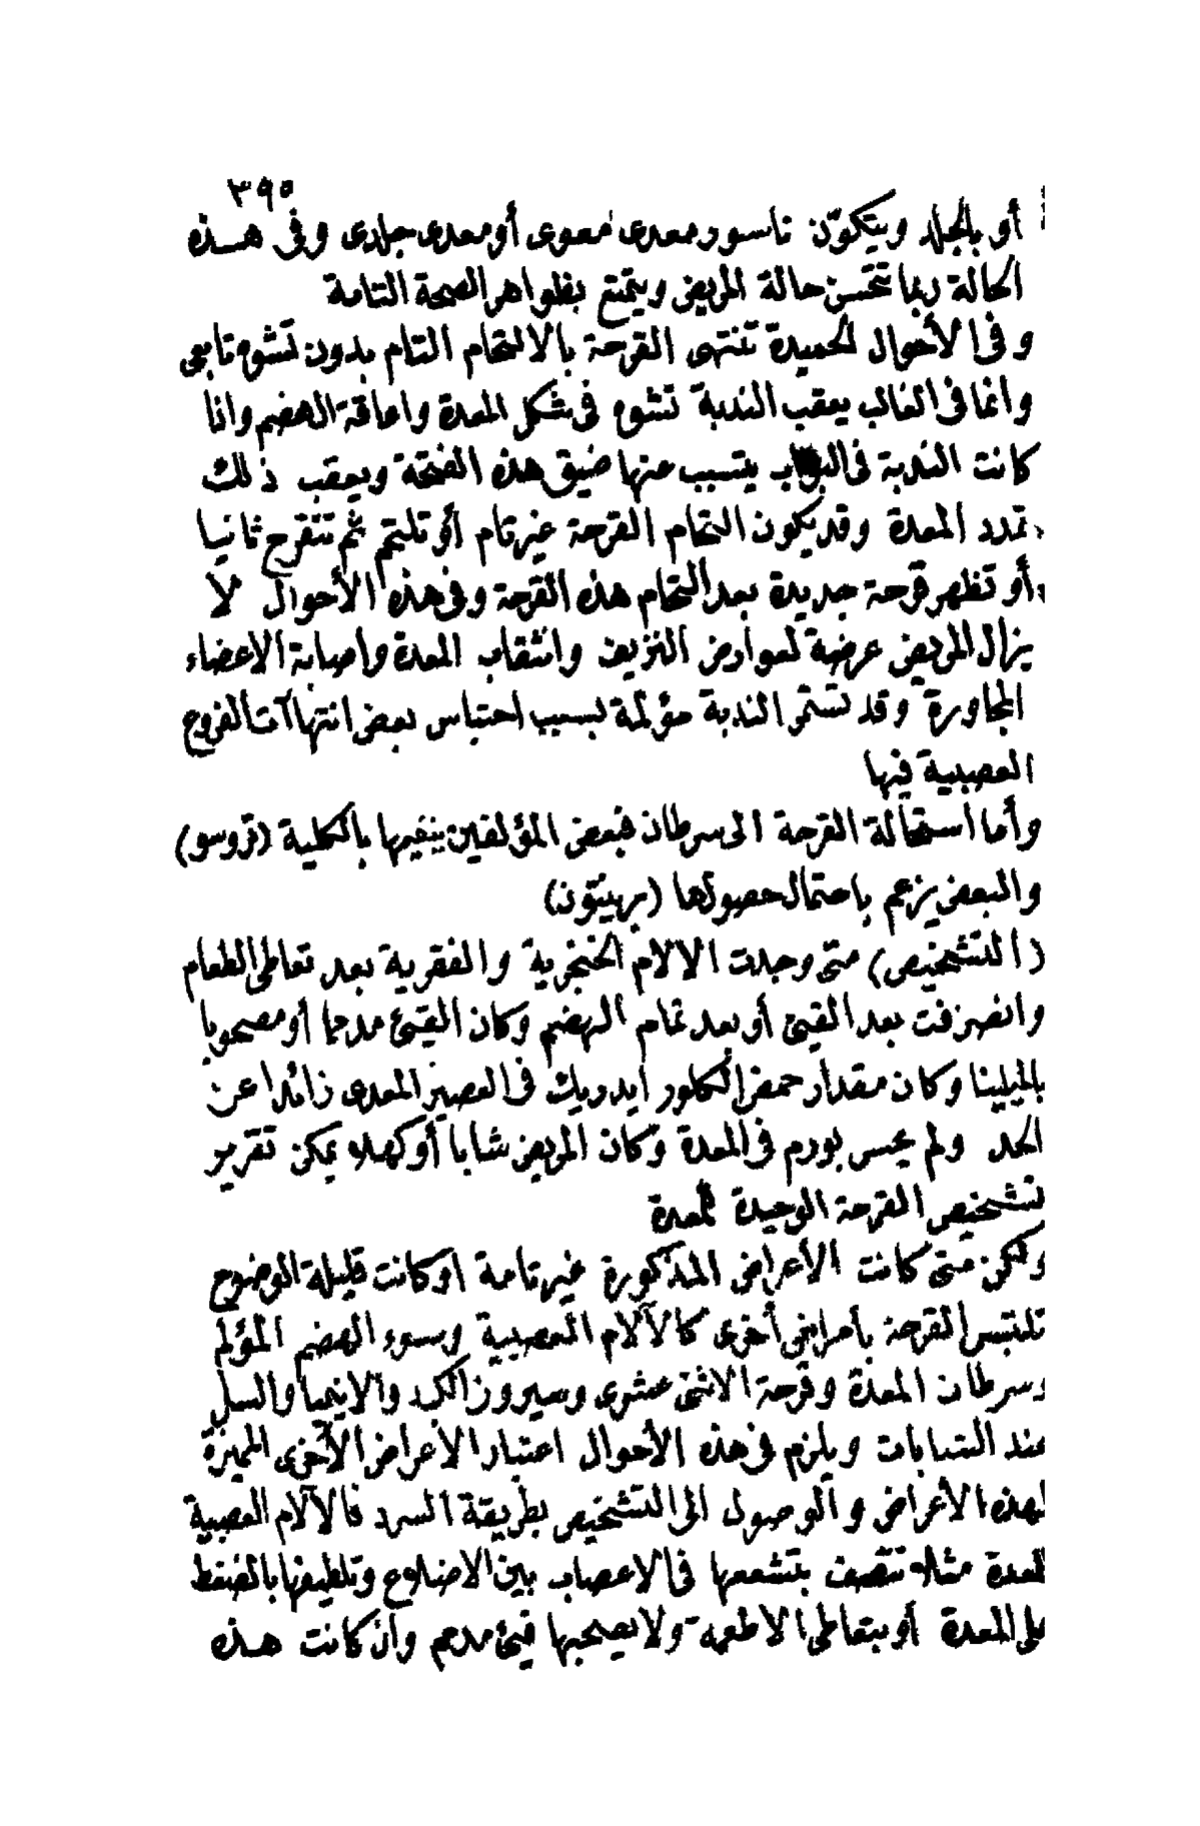 ٣٩٥
أو بالجلد ويتكوّن ناسور معدى معوى أو معدى جلدى وفى هذه
الحالة ربما تتحسن حالة المريض ويتمتع بظواهر الصحة التامة
وفى الأحوال الحميدة تنتهى القرحة بالالتحام التام بدون تشوه تابعى
وانما فى الغالب يعقب الندبة تشوه فى شكل المعدة واعاقة الهضم واذا
كانت الندبة فى البواب يتسبب عنها ضيق هذه الفتحة ويعقب ذلك
تمدد المعدة وقد يكون التحام القرحة غير تام أو تلتحم ثم تتقرح ثانيا
أو تظهر قرحة جديدة بعد التحام هذه القرحة وفى هذه الأحوال لا
يزال المريض عرضة لعوارض النزيف وانثقاب المعدة واصابة الاعضاء
المجاورة وقد تستمر الندبة مؤلمة بسبب احتباس بعض انتهاآت الفروع
العصبية فيها
وأما استحالة القرحة الى سرطان فبعض المؤلفين ينفيها بالكلية (تروسو)
والبعض يزعم باحتمال حصولها (برينتون)
(التشخيص) متى وجدت الالام الخنجرية والفقرية بعد تعاطى الطعام
وانصرفت بعد القيئ أو بعد تمام الهضم وكان القيئ مدمما أو مصحوبا
بالميلينا وكان مقدار حمض الكلور ايدريك فى العصير المعدى زائدا عن
الحد ولم يحس بورم فى المعدة وكان المريض شابا أو كهلا يمكن تقرير
تشخيص القرحة الوحيدة للمعدة
ولكن متى كانت الأعراض المذكورة غير تامة او كانت قليلة الوضوح
تلتبس القرحة بأمراض أخرى كالآلام العصبية وسوء الهضم المؤلم
وسرطان المعدة وقرحة الاثنى عشرى وسيروز الكبد والانيميا والسل
عند الشابات ويلزم فى هذه الأحوال اعتبار الأعراض الأخرى المميزة
لهذه الأعراض والوصول الى التشخيص بطريقة السرد فالآلام العصبية
للمعدة مثلا تتصف بتشععها فى الاعصاب بين الاضلاع وتلطيفها بالضغط
على المعدة أو بتعاطى الاطعمة ولا يصحبها قيئ مدمم وان كانت هذه